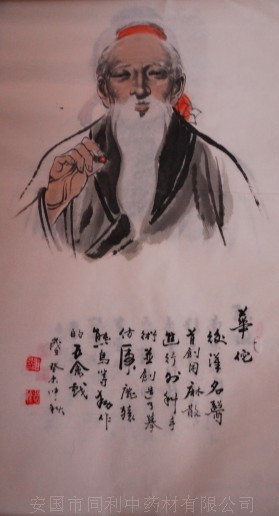 華佗
後漢名醫
首創用麻散
進行外科手
術並創造了摹
仿虎鹿猿
熊鸟等動作
的五禽戏
癸未仲秋
安国市同利中药材有限公司